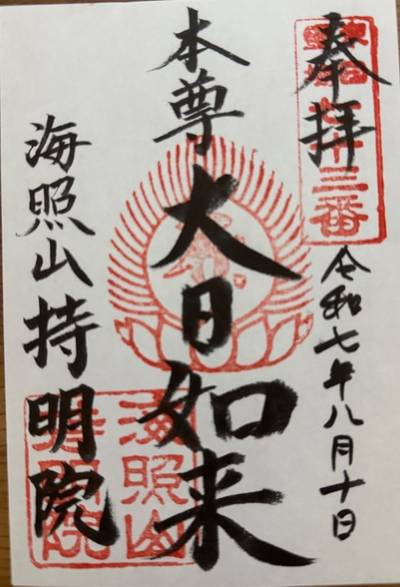 奉拝
令和七年八月十日
本尊
大日如来
海照山持明院
三番
海照山
持明院